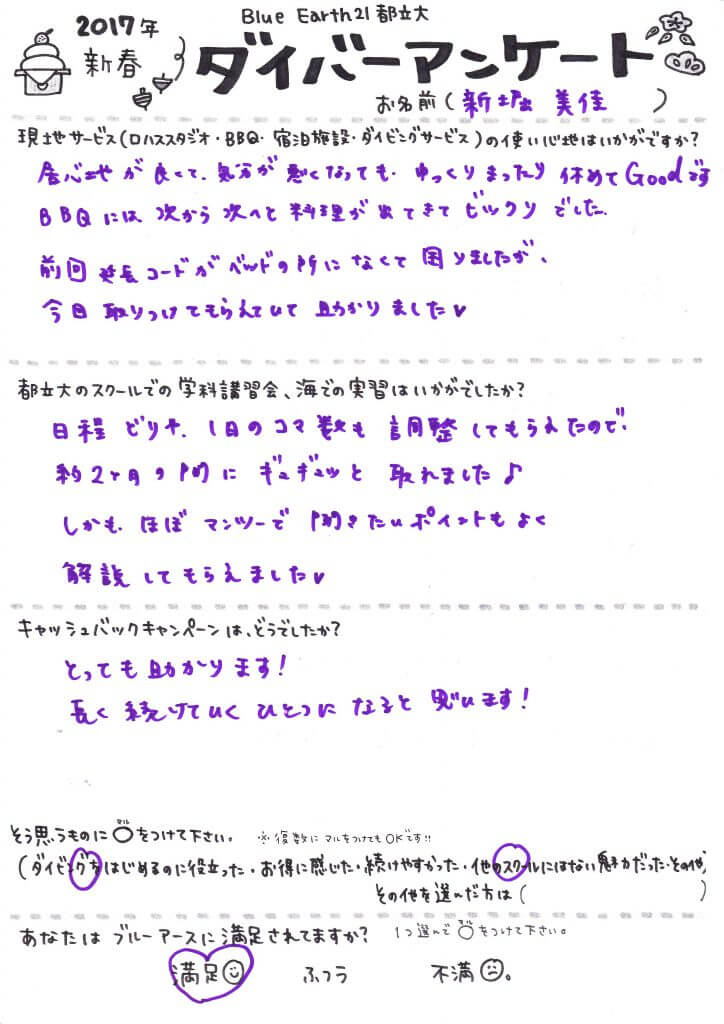 Blue Earth21 都立大
2017年
新春
ダイバーアンケート
お名前(新堀 美佳 )
現地サービス(ロハススタジオ・BBQ・宿泊施設・ダイビングサービス)の使い心地はいかがですか?
居心地が良くて、気分が悪くなっても、ゆっくりまったり休めてGoodです
BBQには次から次へと料理が出てきてビックリでした。
前回延長コードがベッドの所になくて困りましたが、
今日取りつけてもらえていて助かりました♥
都立大のスクールでの学科講習会、海での実習はいかがでしたか?
日程どりや、1日のコマ数も調整してもらえたので、
約2ヶ月の間にギュギュッと取れました♪
しかも、ほぼマンツーで聞きたいポイントもよく
解説してもらえました♥
キャッシュバックキャンペーンは、どうでしたか?
とっても助かります!
長く続けていくひとつになると思います!
そう思うものに○をつけて下さい。 ※復数にマルをつけてもOKです!!
マル
(ダイビングをはじめるのに役立った・お得に感じた・続けやすかった・他のスクールにはない魅力だった・その他)
その他を選んだ方は( )
あなたはブルーアースに満足されてますか? 1つ選んで○をつけて下さい。
マル
満足 ふつう 不満。